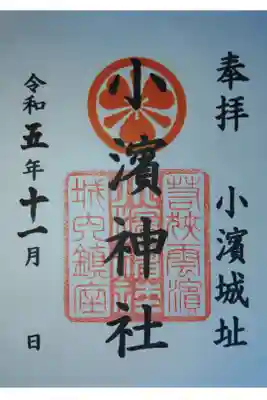 奉拝
小濱城址
小濱神社
若狹雲濱
城内鎮座
令和五年十一月 日